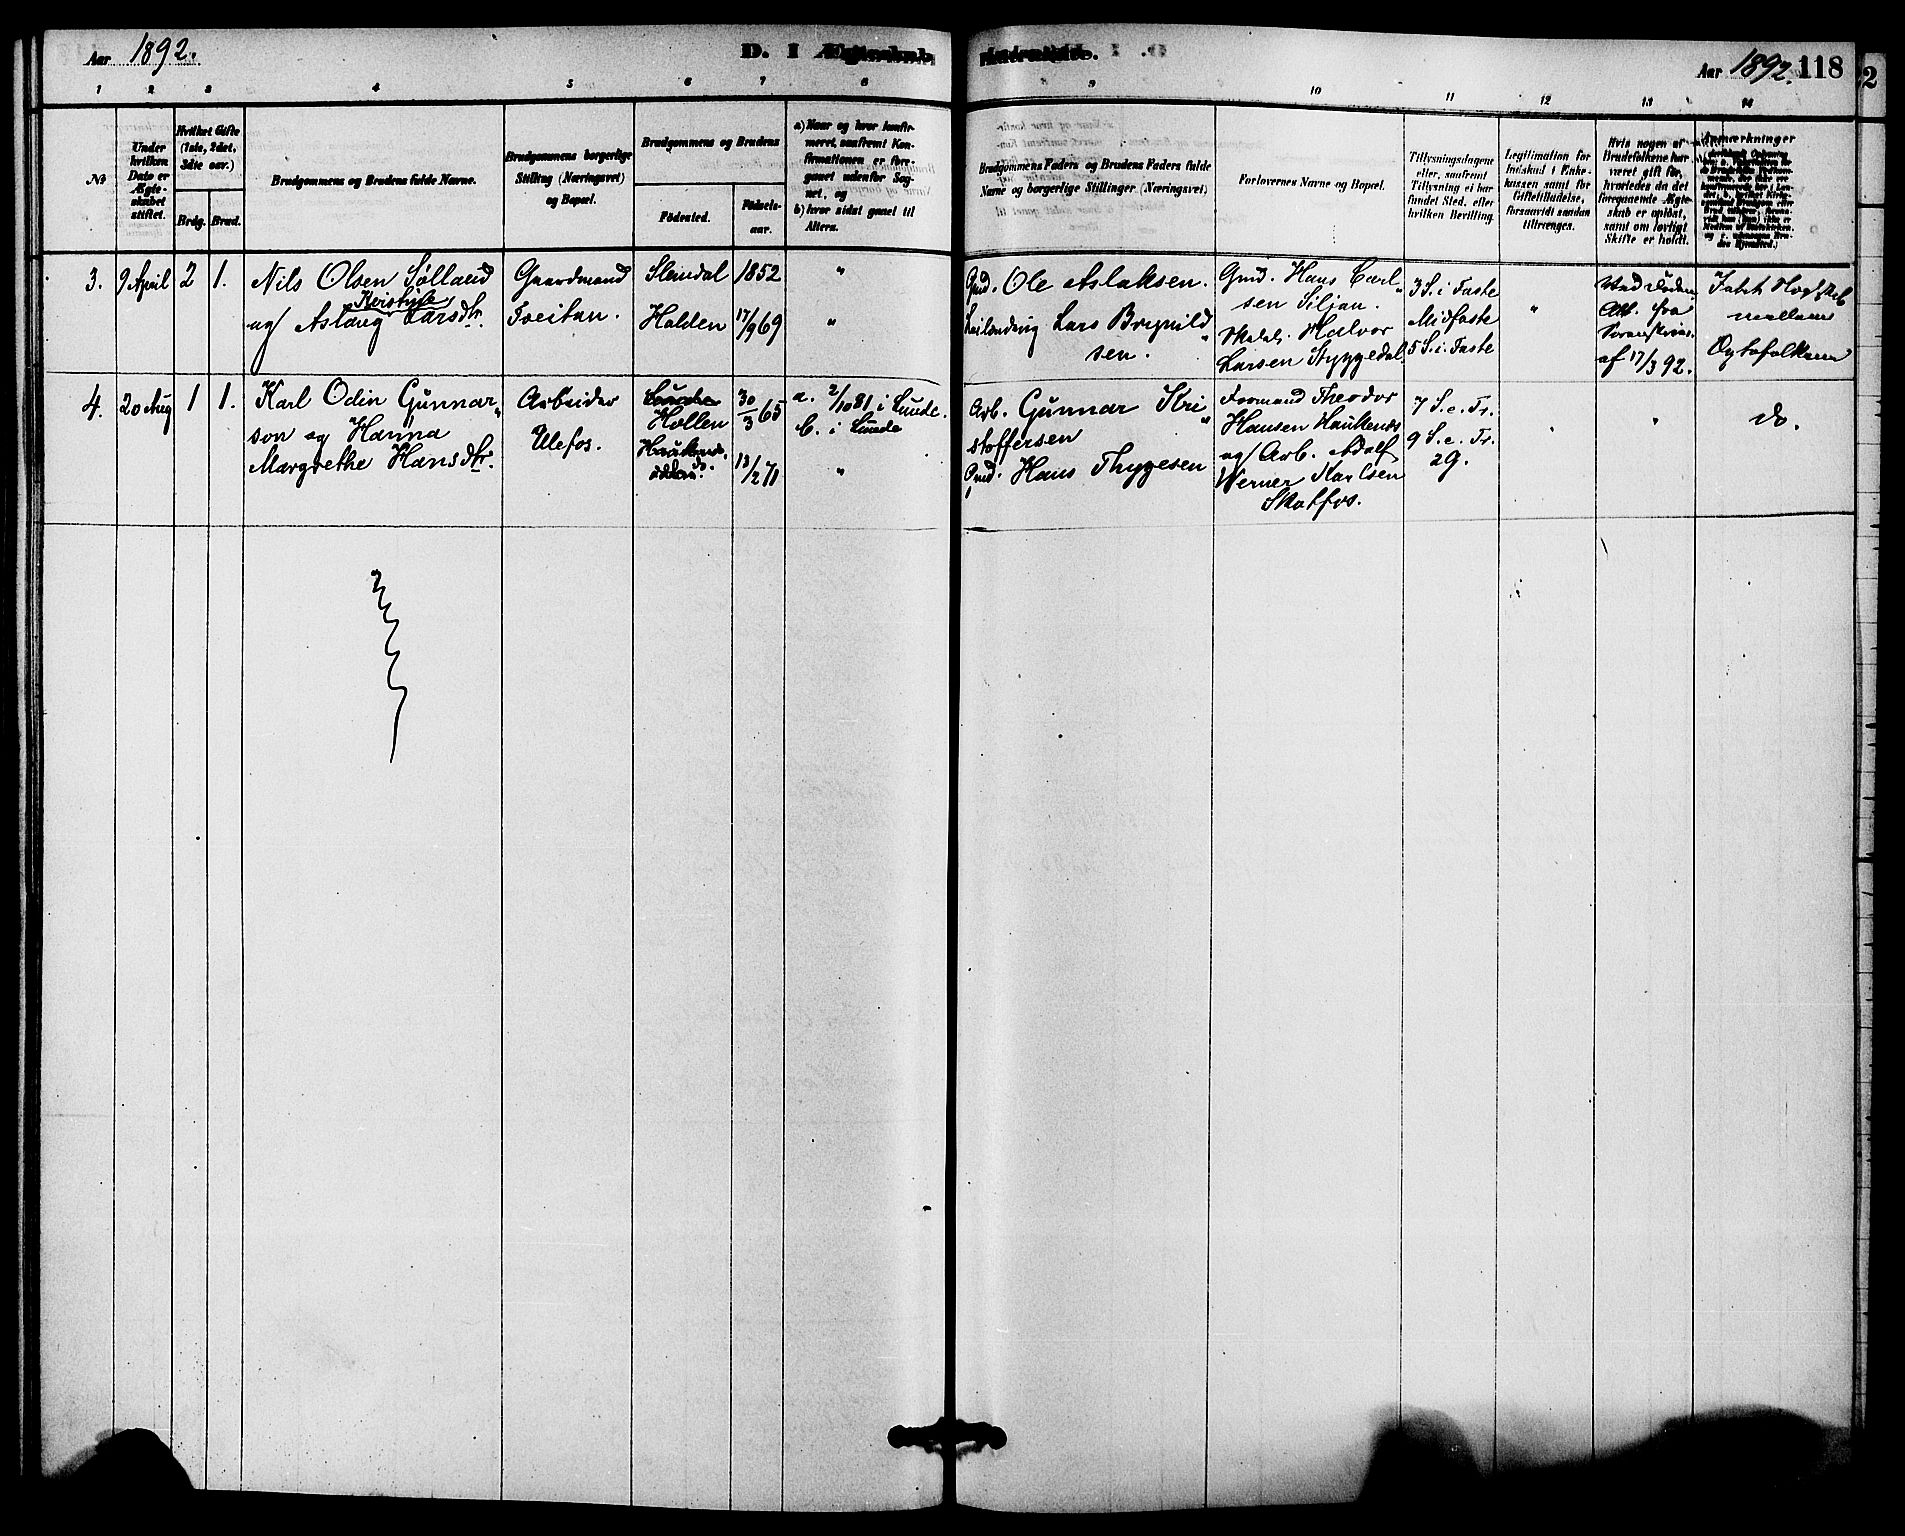 Aar 1892.
D. I Ægteskab
Aar 1892. 118
1 2 3 4 5 6 7 8 9 10 11 12 13 14
№
Under hvilken Dato er Ægteskabet stiftet.
Hvilket Gifte (1ste, 2det, 3die osv.)
Brdg. Brud.
Brudgommens og Brudens fulde Navne.
Brudgommens borgerlige Stilling (Næringsvei) og Bopæl.
Brudgommens og Brudens
Fødested.
Fødselsaar.
a) Naar og hvor konfirmeret, saafremt Konfirmationen er foregaaet udenfor Sognet, og
b) hvor sidst gaaet til Alters.
Brudgommens Faders og Brudens Faders fulde Navne og borgerlige Stillinger (Næringsvei)
Forlovernes Navne og Bopæl.
Tillysningsdagene eller, saafremt Tillysning ei har fundet Sted, efter hvilken Bevilling.
Legitimation for Indskud i Enkekassen samt for Giftetilladelse, forsaavidt saadan tiltrænges.
Hvis nogen af Brudefolkene har været gift før, hvorledes da det foregaaende Ægteskab er opløst, samt om lovligt Skifte er holdt.
Anmærkninger
3. 9 April 2 1.
Nils Olsen Sølland
Kirstine
og Aslaug Larsdtr.
Gaardmand
Tveitan.
Slemdal 1852 "
Holden 17/9 69 "
Gmd. Ole Aslaksen.
Leilending Lars Brynildsen.
Gmd. Hans Carlsen Siljan.
Halvor
Larsen Styggedal
3 S. i Faste
Midfaste
5 S. i. Faste
"
fra
af 17/3 92.
mellem
4. 20 Aug 1 1.
Karl Odin Gunnarson og Hanna
Margrethe Hansdtr.
Arbeider
Ulefos.
Hollen 30/3 65
13/2 71
a. 2/10 81 i Lunde.
b. i Lunde
"
Arb. Gunnar Kristoffersen
Hans Thygesen
Formand Theodor
Hansen Haukenæs
og Arb. Adolf
Werner Karlsen
Skotfos.
7 S. e. Tr.
9 S. e. Tr.
29.
"
"
do.